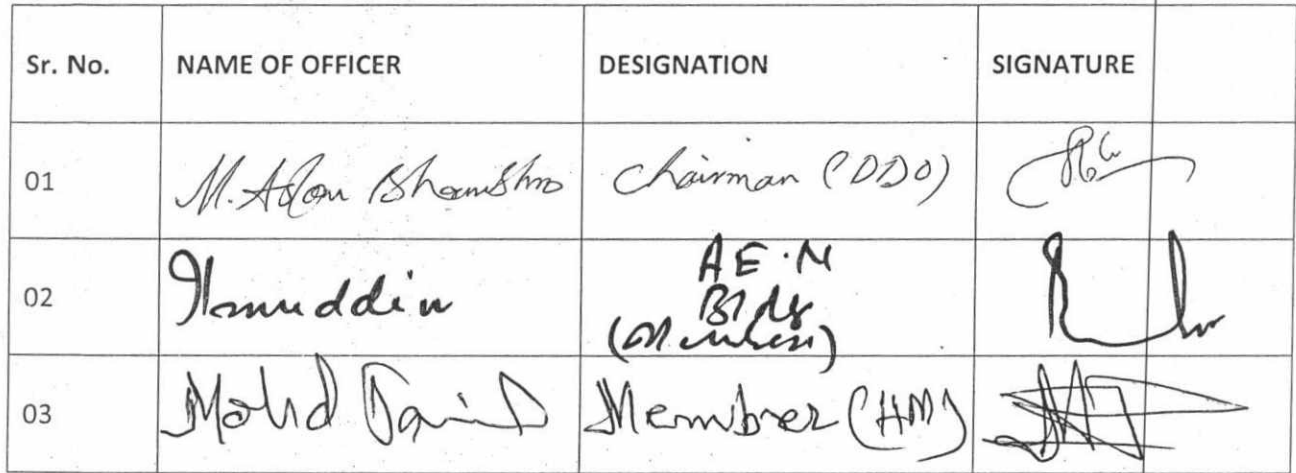 Sr. No. NAME OF OFFICER DESIGNATION SIGNATURE
01 M. Bhambhro Chairman (DDO)
02 A E.N
Bldg
(Member)
03 Mohd Member (HM)